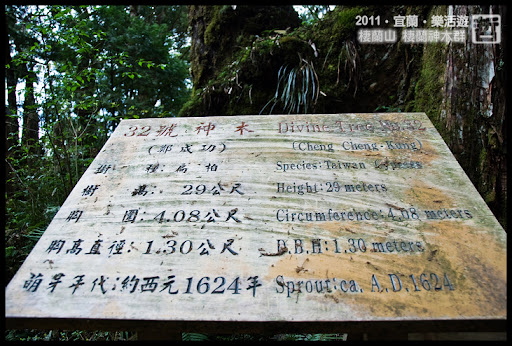 2011・宜蘭・樂活遊
棲蘭山 棲蘭神木群
32號 神木 Divine Tree No.32
(鄭成功) (Cheng Cheng-Kung)
樹 種:扁柏 Species:Taiwan Cypress
樹 高: 29公尺 Height:29 meters
胸 圍:4.08公尺 Circumference:4.08 meters
胸高直徑:1.30公尺 D.B.H:1.30 meters
萌芽年代:約西元1624年 Sprout:ca. A.D.1624